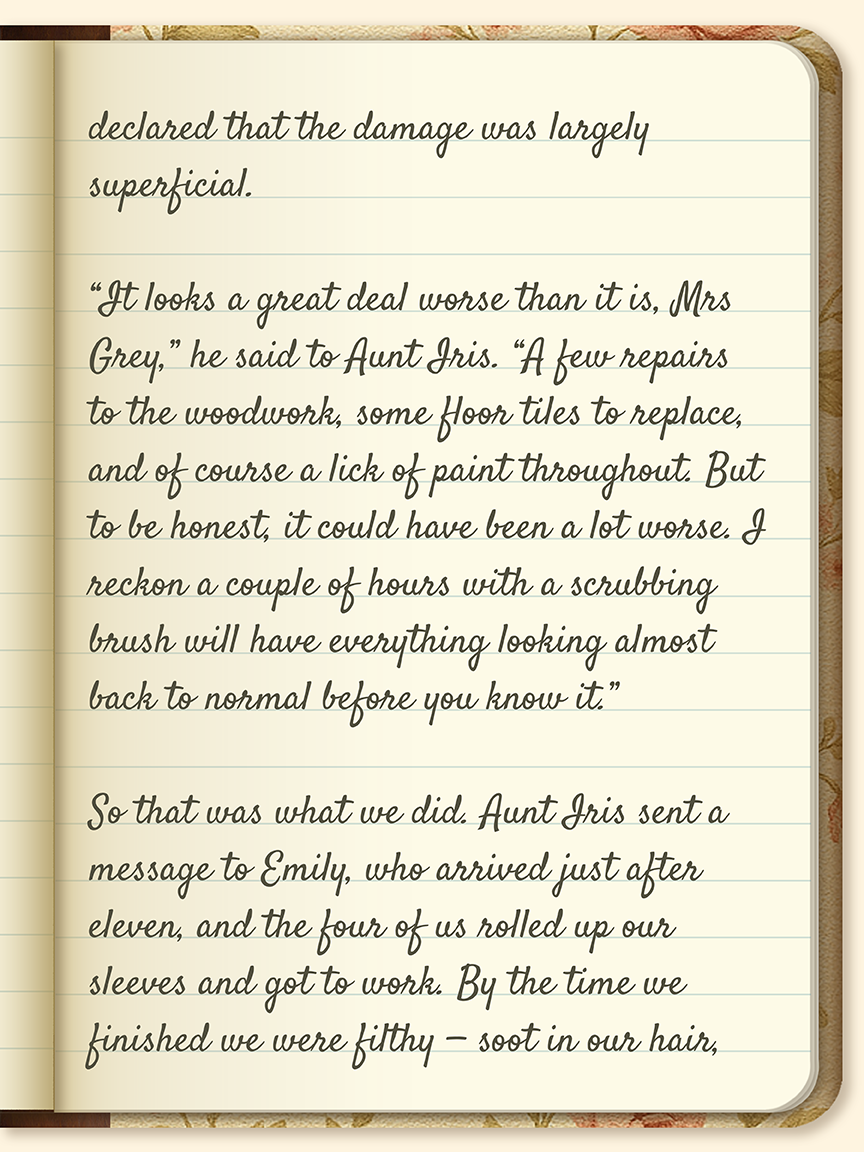 declared that the damage was largely
superficial.
“It looks a great deal worse than it is, Mrs
Grey,” he said to Aunt Iris. “A few repairs
to the woodwork, some floor tiles to replace,
and of course a lick of paint throughout. But
to be honest, it could have been a lot worse. I
reckon a couple of hours with a scrubbing
brush will have everything looking almost
back to normal before you know it.”
So that was what we did. Aunt Iris sent a
message to Emily, who arrived just after
eleven, and the four of us rolled up our
sleeves and got to work. By the time we
finished we were filthy – soot in our hair,